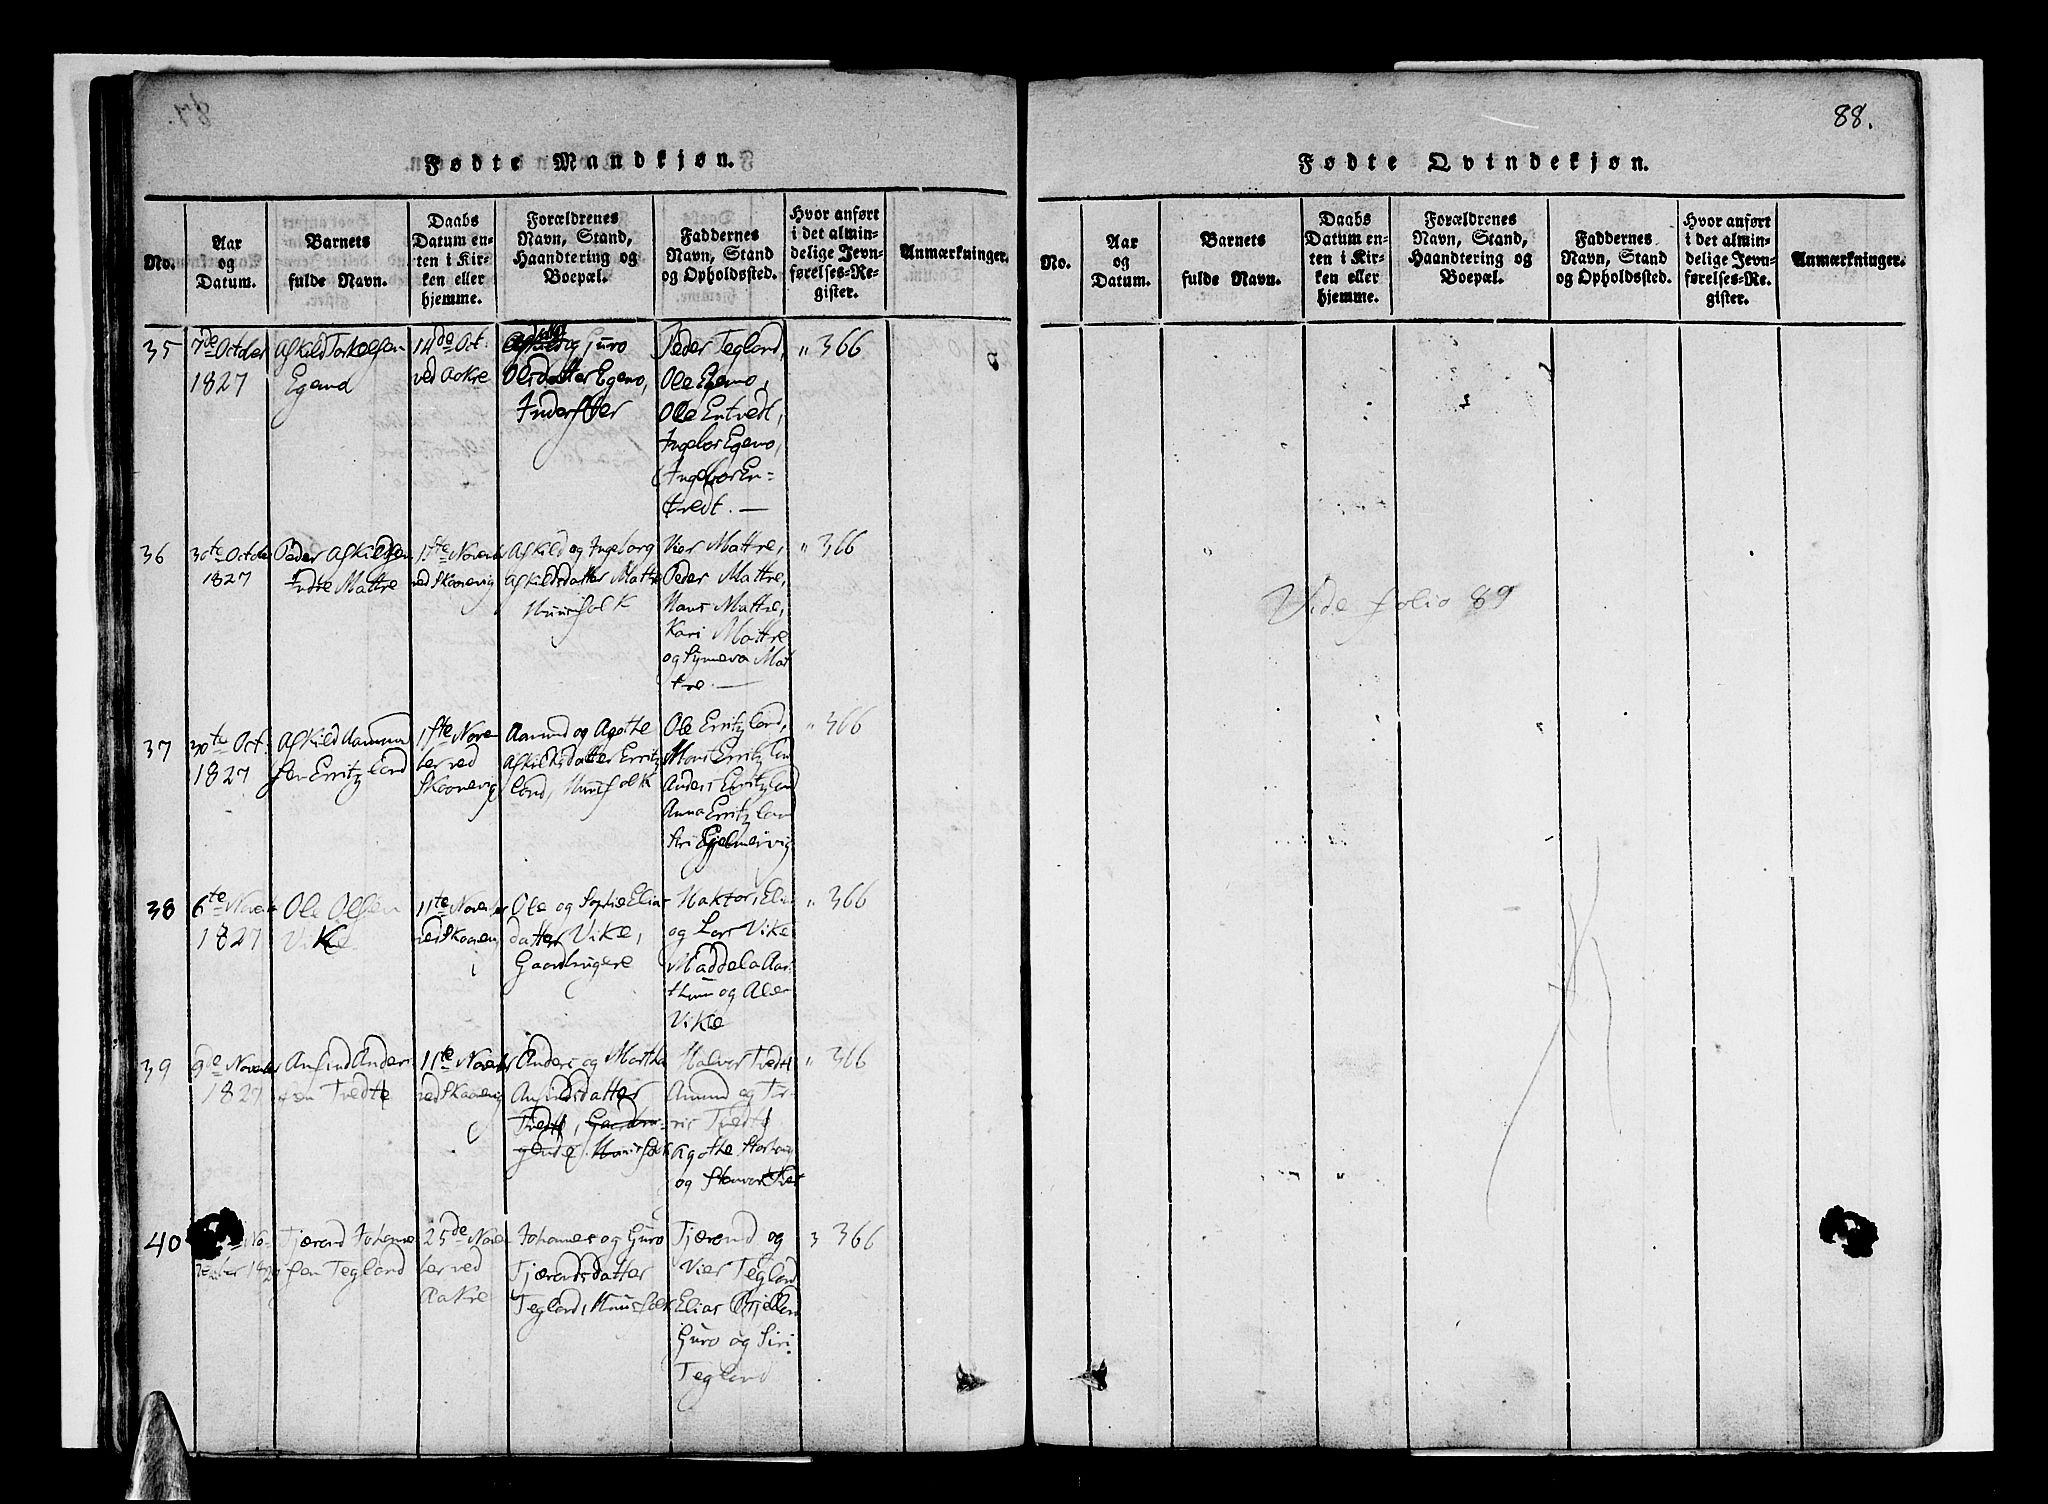 Fødte Mandkjøn.
No.
Aar
og
Datum.
Barnets
fulde Navn.
Daabs
Datum en-
ten i Kir-
ken eller
hjemme.
Forældrenes
Navn, Stand,
Haandtering og
Boepæl.
Faddernes
Navn, Stand
og Opholdssted.
Hvor anført
i det almin-
delige Jevn-
førelses-Re-
gister.
Anmærkninger.
35
7de October
1827
Askild Torkelsen
14de Oct.
ved Aakre
og Guro
Olsdatter
Peder Tegland,
Ole
Ole Entvedt,
Ingebor
Ingebor En-
tvedt. —
" 366
36
30te October
1827
Peder Askildsen
Mattre
ved Skaanevig
Askild og Ingeborg
Askildsdatter Mattre
Huusfolk
Vier Mattre,
Peder Mattre,
Hans Mattre,
Kari Mattre
og Synneva Mat
tre. —
" 366
37
30te Oct.
1827
Askild
sen Erritzland
ber ved
Skaanevig
Aamund og Agothe
Askildsdatter Erritz
land, Huusfolk
Ole Erritzland,
Mons Erritzlan
Anders Erritzland
Anna Erritzlan
" 366
38
6te
1827
Ole Olsen
Vike
11te November
ved Skaanev
i
Ole og Sophie Elia
datter Vike,
Gaardbrugere
og Lars Vike
Vike
" 366
39
9de November
1827
Anfind Anders
sen Tvedte
11te November
ved Skaanevig
Anders og Martha
Anfindsdatter
Tvedt, Gaardbru-
gende. Huusfolk
Halvor Tvedt
Amund og
Tvedt
Agothe
og
" 366
40
No-
vember 1827
Tjærand Johanne
sen Tegland
25de Novem
ber ved
Aakre
Johannes og Guro
Tjærandsdatter
Tegland, Huusfolk
Tjærand og
Vier Tegland
Elias
Guro og Siri
Tegland
366
88.
Fødte Qvindekjøn.
No.
Aar
og
Datum.
Barnets
fulde Navn.
Daabs
Datum en-
ten i Kir-
ken eller
hjemme.
Forældrenes
Navn, Stand,
Haandtering og
Boepæl.
Faddernes
Navn, Stand
og Opholdssted.
Hvor anført
i det almin-
delige Jevn-
førelses-Re-
gister.
Anmærkninger.
Vide folio 89